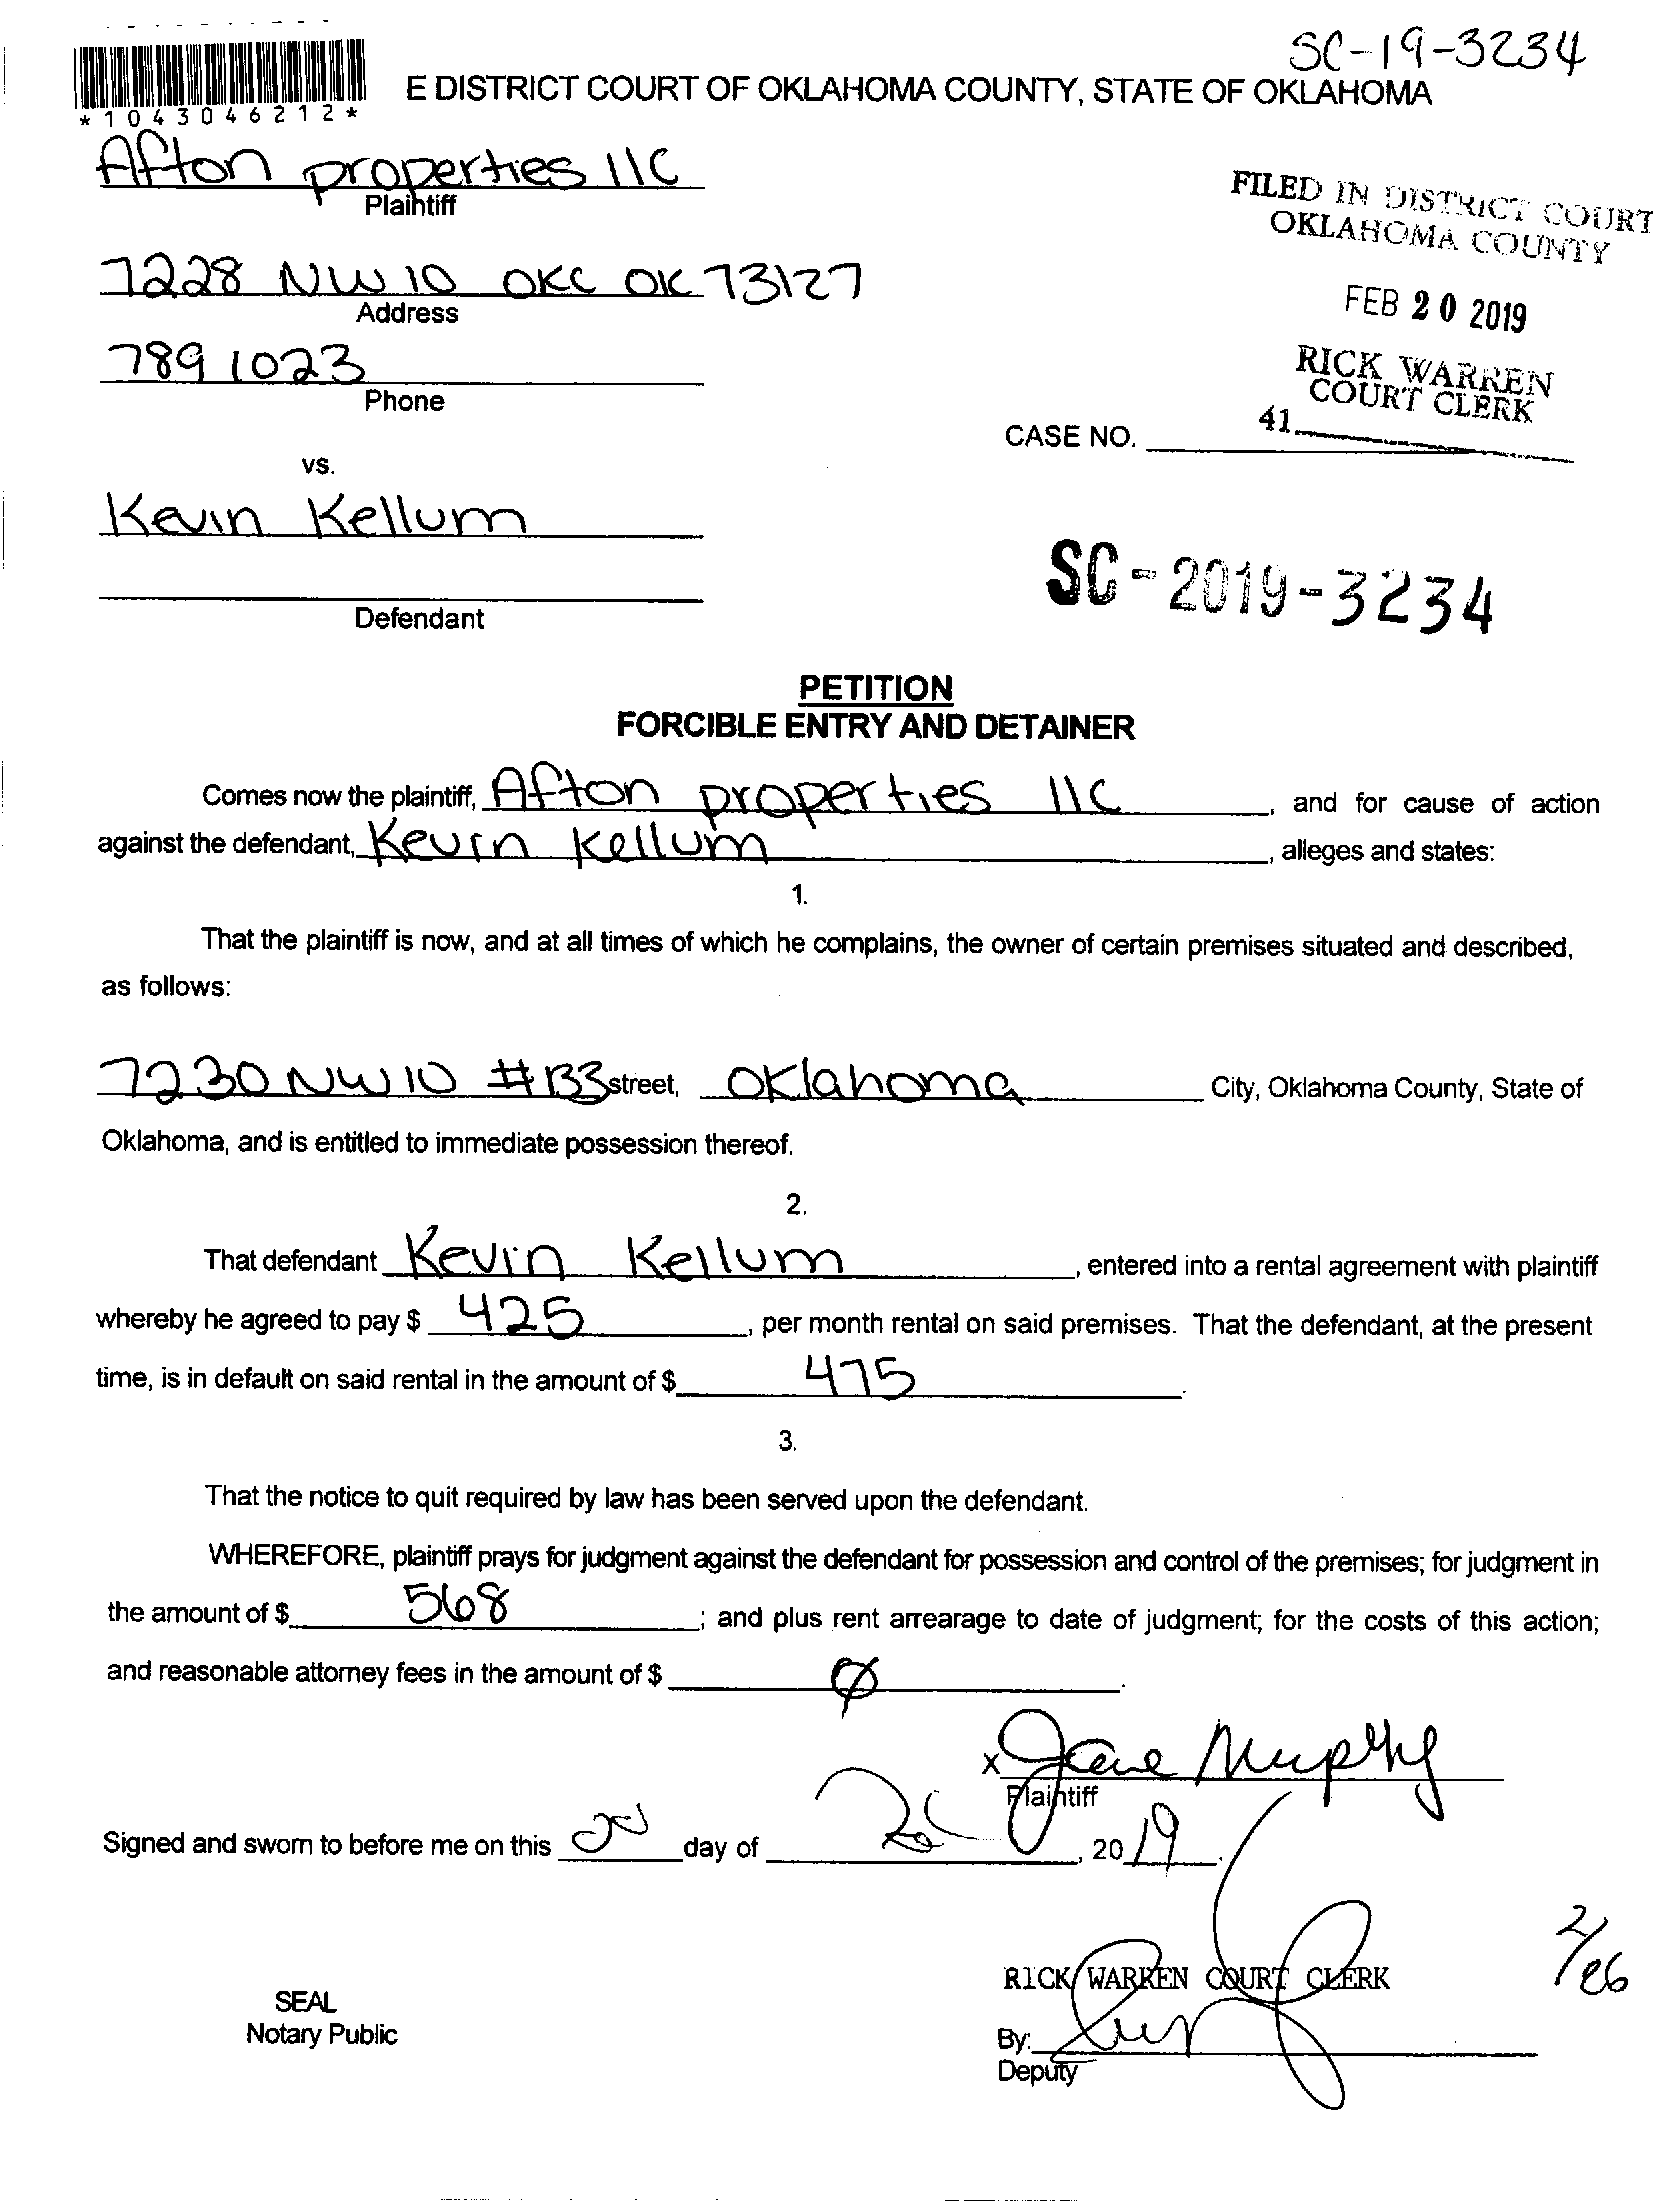 SC-19-3234
E DISTRICT COURT OF OKLAHOMA COUNTY, STATE OF OKLAHOMA
*1043046212*
Afton properties llc
Plaintiff
FILED IN DISTRICT COURT
OKLAHOMA COUNTY
7228 NW 10 OKC OK 73127
Address
FEB 20 2019
789 1023
Phone
RICK WARREN
COURT CLERK
41
CASE NO.
vs.
Kevin Kellum
Defendant
SC-2019-3234
PETITION
FORCIBLE ENTRY AND DETAINER
Comes now the plaintiff, Afton properties llc, and for cause of action
against the defendant, Kevin Kellum, alleges and states:
1.
That the plaintiff is now, and at all times of which he complains, the owner of certain premises situated and described,
as follows:
7230 NW 10 #133 street, Oklahoma City, Oklahoma County, State of
Oklahoma, and is entitled to immediate possession thereof.
2.
That defendant Kevin Kellum, entered into a rental agreement with plaintiff
whereby he agreed to pay $ 425, per month rental on said premises. That the defendant, at the present
time, is in default on said rental in the amount of $ 475.
3.
That the notice to quit required by law has been served upon the defendant.
WHEREFORE, plaintiff prays for judgment against the defendant for possession and control of the premises; for judgment in
the amount of $ 568; and plus rent arrearage to date of judgment; for the costs of this action;
and reasonable attorney fees in the amount of $ Ø.
x Jane Murphy
Plaintiff
Signed and sworn to before me on this 20 day of , 2019.
2/26
RICK WARREN COURT CLERK
SEAL
Notary Public
By:
Deputy